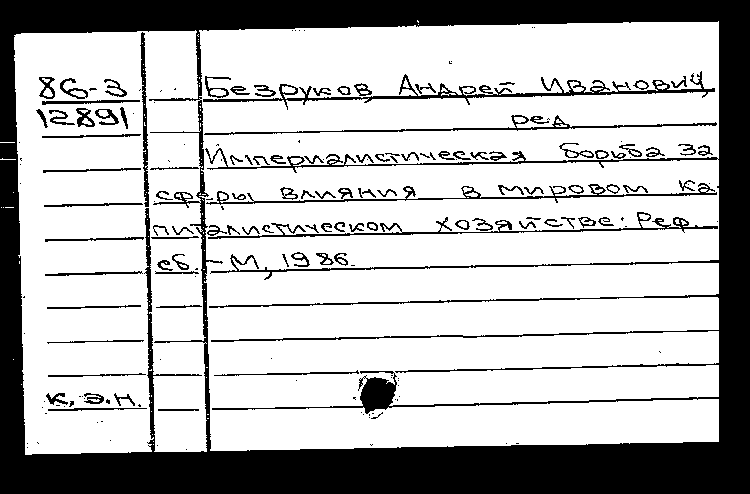 86-3
12891
Безруков, Андрей Иванович,
ред.
Империалистическая борьба за
сферы влияния в мировом ка-
питалистическом хозяйстве: Реф.
сб. - М, 1986.
к.э.н.